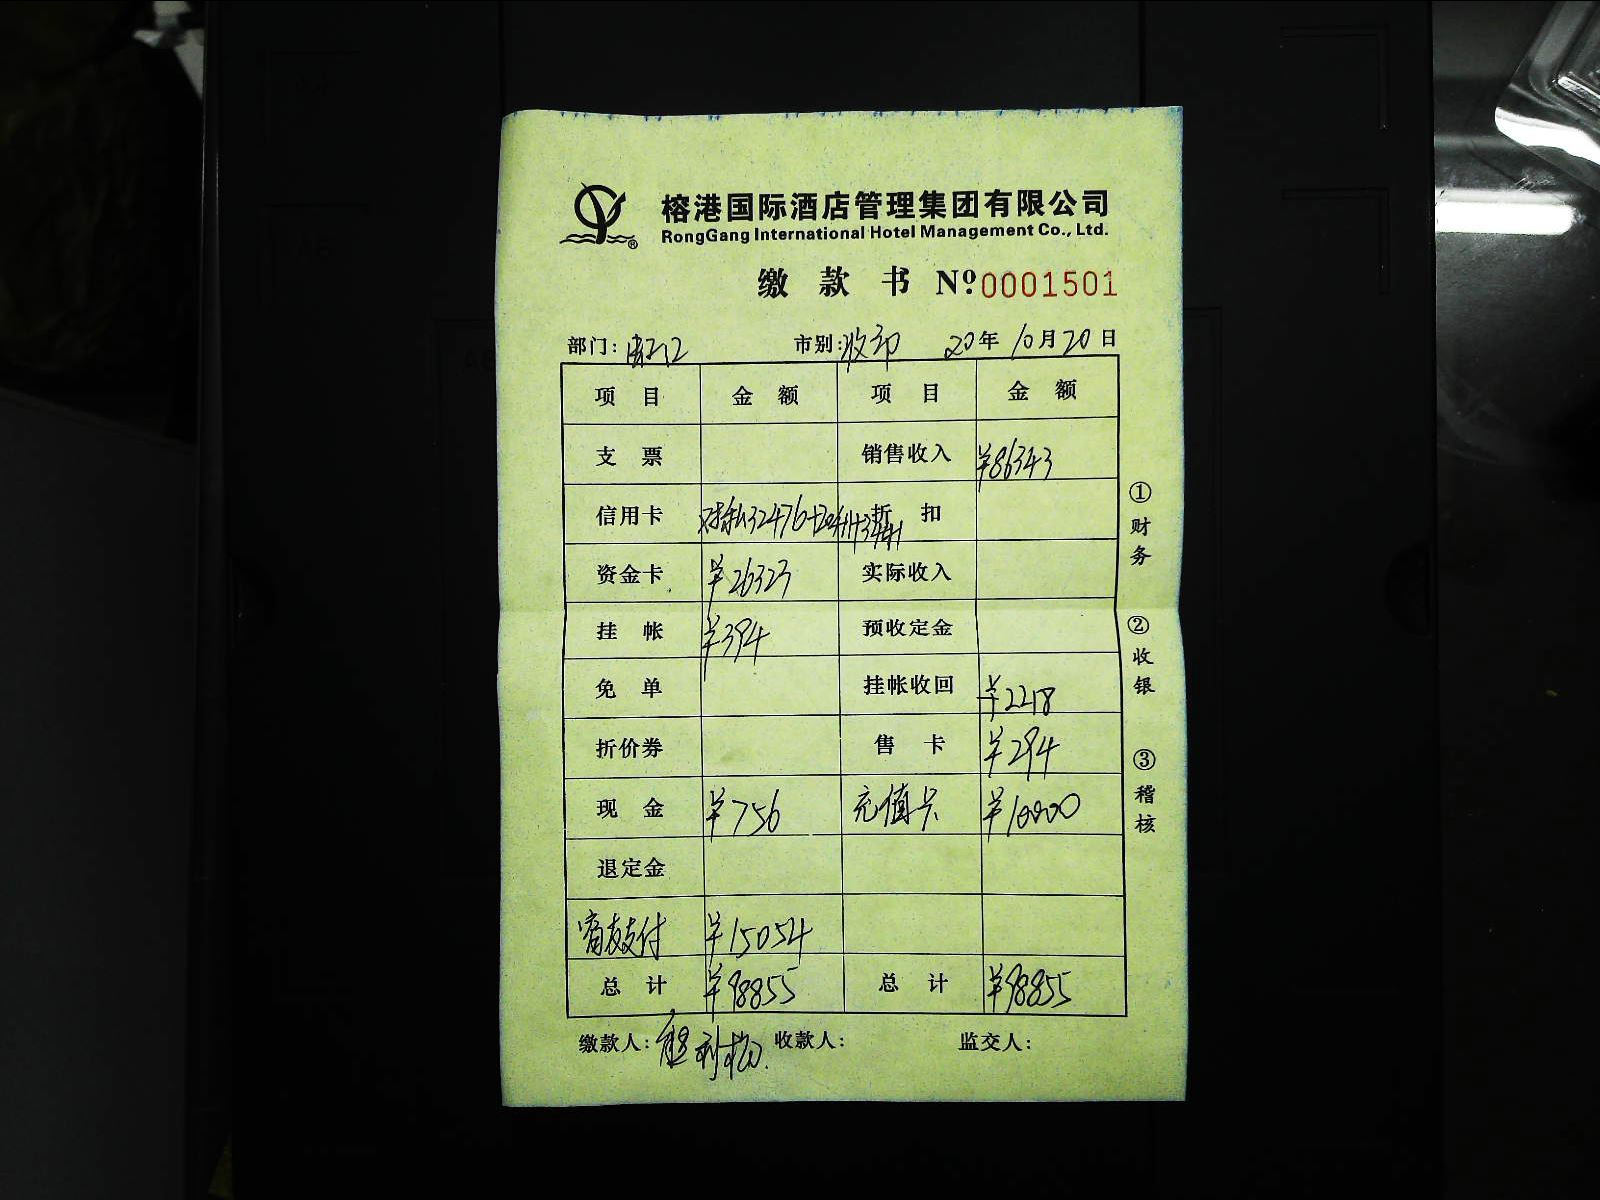 榕港国际酒店管理集团有限公司
RongGang International Hotel Management Co., Ltd.
缴 款 书 Nº:0001501
部门: 市别: 20年 10月20日
项 目 金 额 项 目 金 额
支 票 销售收入 ¥86343
信用卡 32476+ 折 扣
资金卡 ¥26323 实际收入
挂 帐 ¥394 预收定金
免 单 挂帐收回 ¥2218
折价券 售 卡 ¥294
现 金 ¥756 充值卡 ¥10000
退定金
支付 ¥15054
总 计 ¥98855 总 计 ¥98855
缴款人: 收款人: 监交人:
①财务
②收银
③稽核